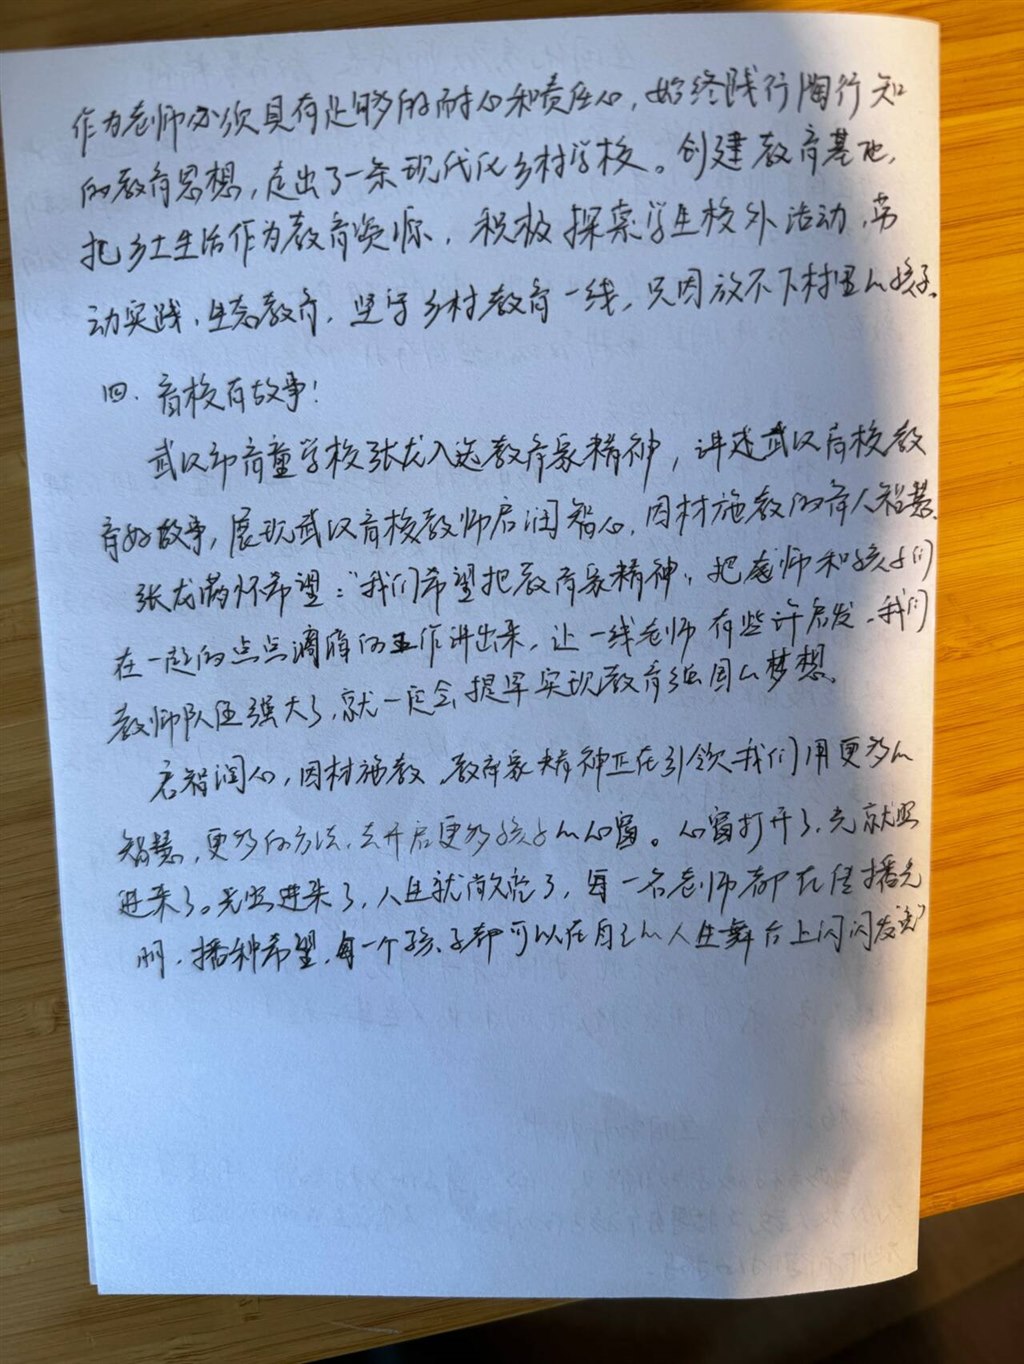 作为老师必须具有足够的耐心和责任心，始终践行陶行知
的教育思想，走出了一条现代化乡村学校。创建教育基地，
把乡土生活作为教育资源，积极探索学生校外活动，劳
动实践，生态教育，坚守乡村教育一线，只因放不下村里的孩子。
四、盲校有故事！
武汉市盲童学校张龙入选教育家精神，讲述武汉盲校教
育好故事，展现武汉盲校教师启润智心，因材施教的育人智慧。
张龙满怀希望："我们希望把教育家精神，把老师和孩子们
在一起的点点滴滴的工作讲出来，让一线老师有些许启发，我们
教师队伍强大了，就一定会提早实现教育强国的梦想。
启智润心，因材施教，教育家精神正在引领我们用更多的
智慧，更多的方法，去开启更多孩子的心窗。心窗打开了，光就照
进来了。光照进来了，人生就敞亮了，每一名老师都在传播光
明，播种希望，每一个孩子都可以在自己的人生舞台上闪闪发光